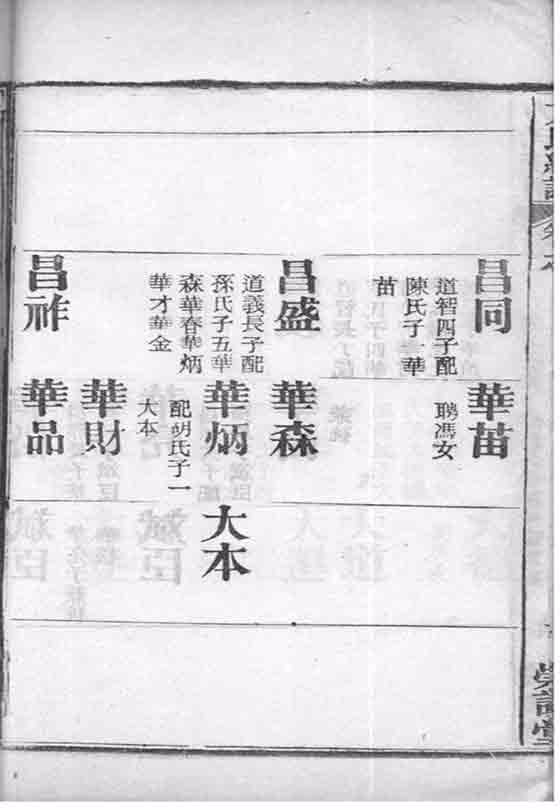 昌同
道智四子配
陳氏子一華
苗
華苗
聘馮女
昌盛
道義長子配
孫氏子五華
森華春華炳
華才華金
華森
華炳
配胡氏子一
大本
大本
華財
昌祚
華品